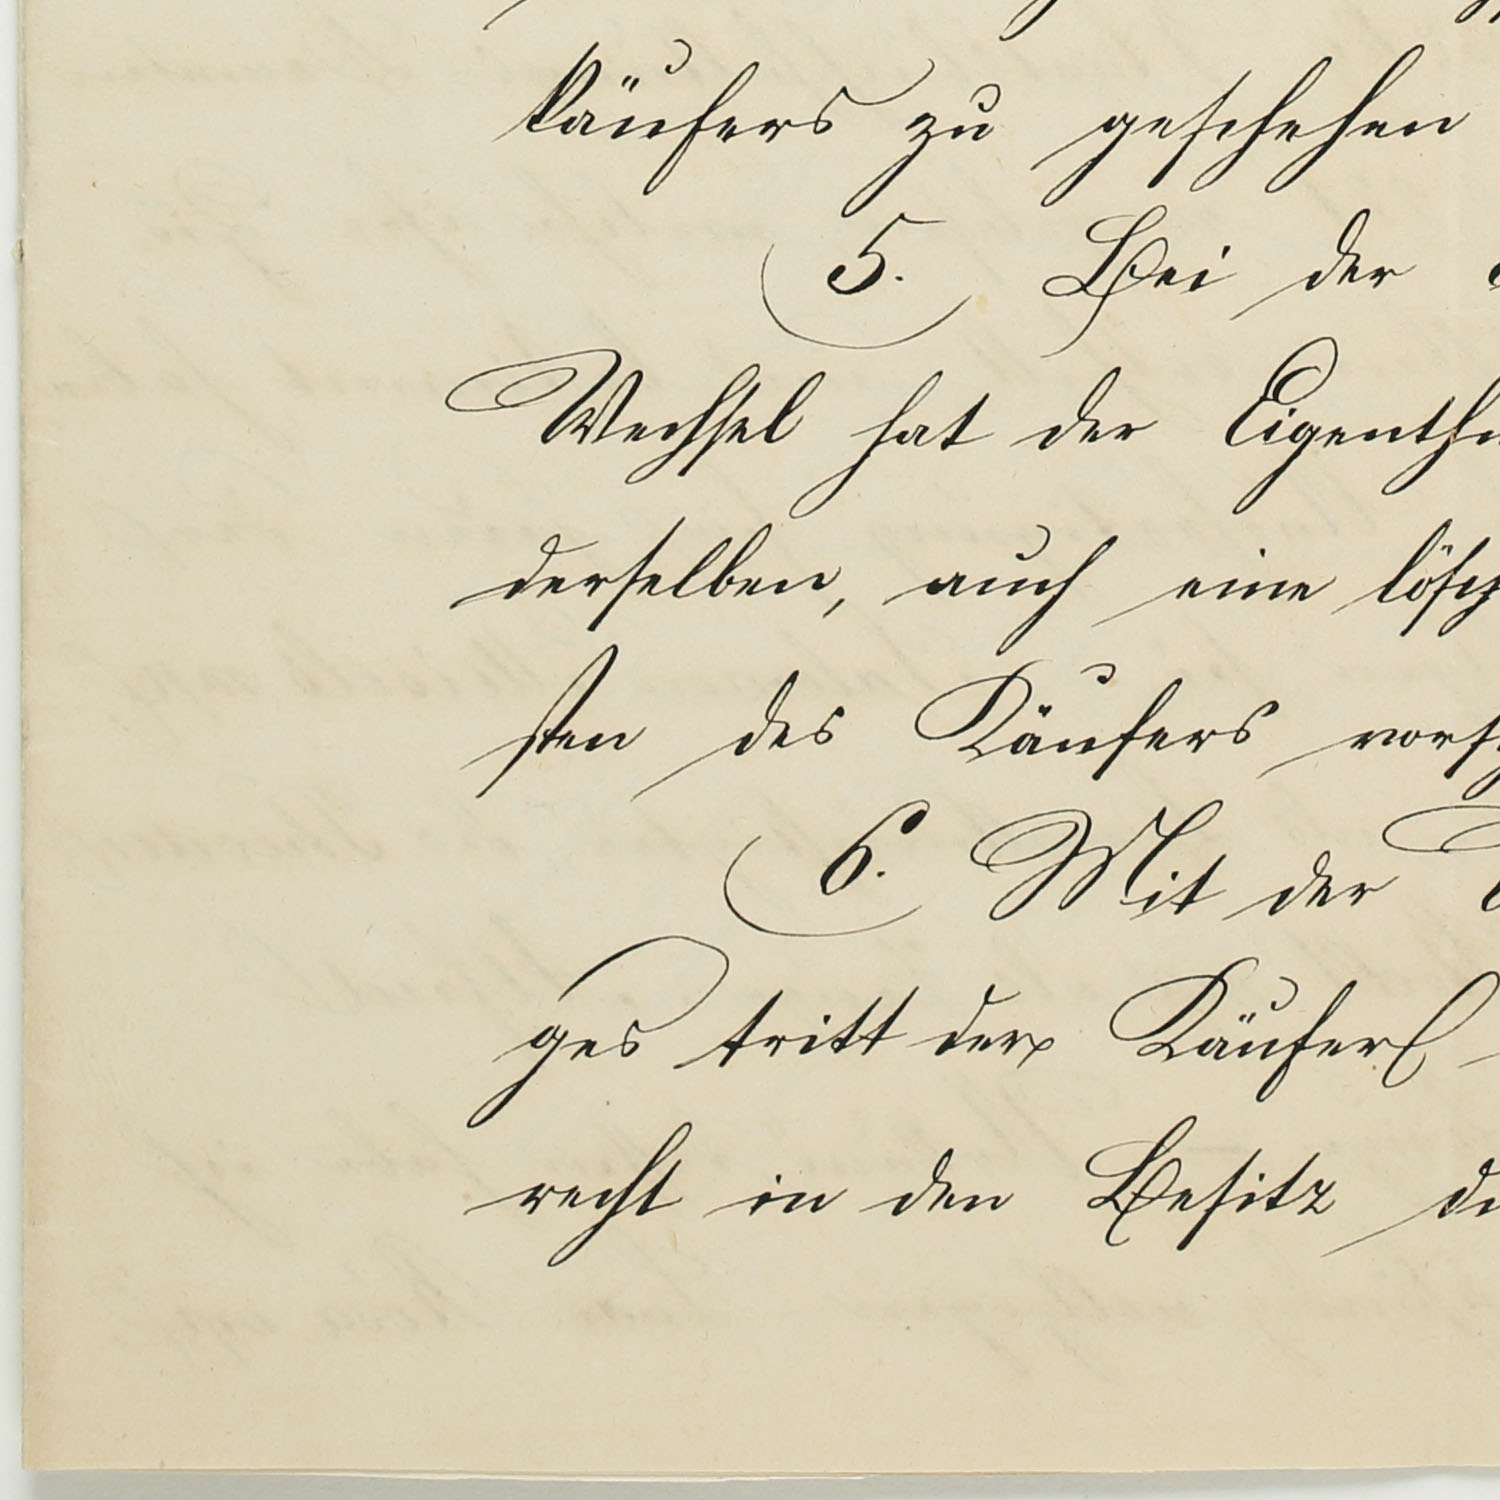 käufers zu geschehen
5. Bei der
Wechsel hat der Eigenthü
derselben, auch eine lösch
sten des Käufers vorz
6. Mit der
ges tritt der Käufer
recht in den Besitz